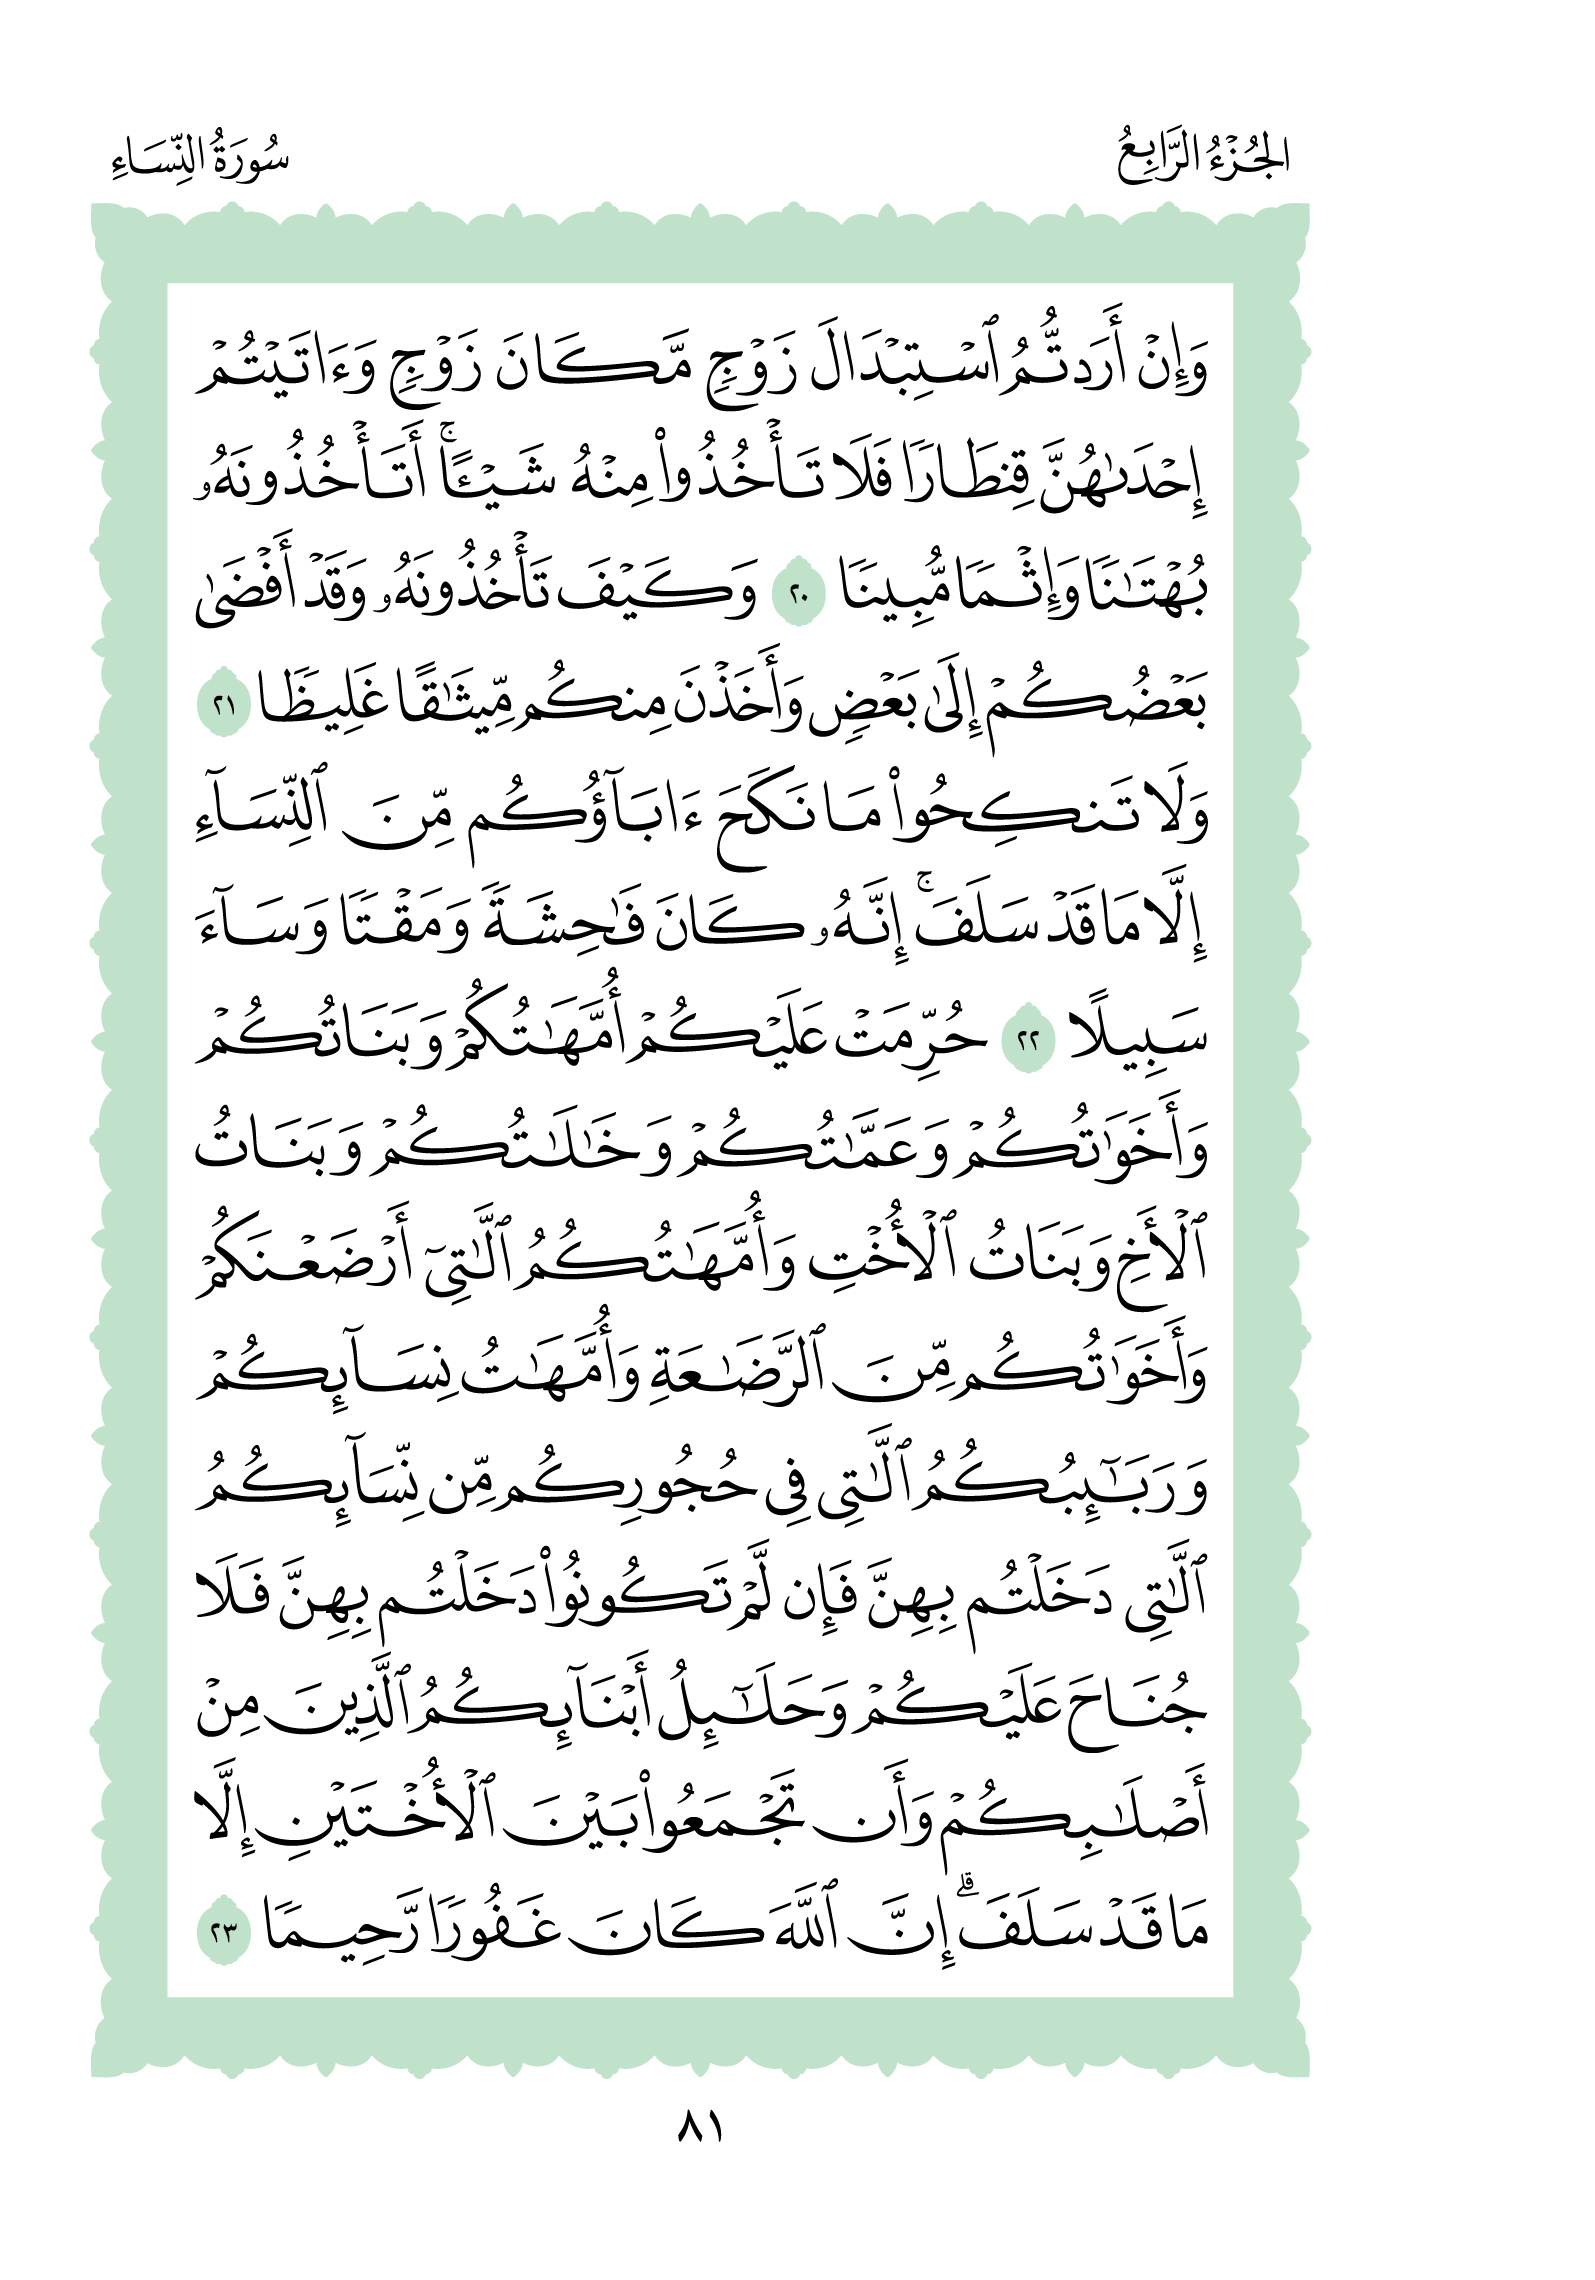 الجُزْءُ الرَّابِعُ
سُورَةُ النِّسَاءِ
وَإِنۡ أَرَدتُّمُ ٱسۡتِبۡدَالَ زَوۡجٖ مَّكَانَ زَوۡجٖ وَءَاتَيۡتُمۡ
إِحۡدَىٰهُنَّ قِنطَارٗا فَلَا تَأۡخُذُواْ مِنۡهُ شَيۡـًٔاۚ أَتَأۡخُذُونَهُۥ
بُهۡتَٰنٗا وَإِثۡمٗا مُّبِينٗا ٢٠ وَكَيۡفَ تَأۡخُذُونَهُۥ وَقَدۡ أَفۡضَىٰ
بَعۡضُكُمۡ إِلَىٰ بَعۡضٖ وَأَخَذۡنَ مِنكُم مِّيثَٰقًا غَلِيظٗا ٢١
وَلَا تَنكِحُواْ مَا نَكَحَ ءَابَآؤُكُم مِّنَ ٱلنِّسَآءِ
إِلَّا مَا قَدۡ سَلَفَۚ إِنَّهُۥ كَانَ فَٰحِشَةٗ وَمَقۡتٗا وَسَآءَ
سَبِيلًا ٢٢ حُرِّمَتۡ عَلَيۡكُمۡ أُمَّهَٰتُكُمۡ وَبَنَاتُكُمۡ
وَأَخَوَٰتُكُمۡ وَعَمَّٰتُكُمۡ وَخَٰلَٰتُكُمۡ وَبَنَاتُ
ٱلۡأَخِ وَبَنَاتُ ٱلۡأُخۡتِ وَأُمَّهَٰتُكُمُ ٱلَّٰتِيٓ أَرۡضَعۡنَكُمۡ
وَأَخَوَٰتُكُم مِّنَ ٱلرَّضَٰعَةِ وَأُمَّهَٰتُ نِسَآئِكُمۡ
وَرَبَٰٓئِبُكُمُ ٱلَّٰتِي فِي حُجُورِكُم مِّن نِّسَآئِكُمُ
ٱلَّٰتِي دَخَلۡتُم بِهِنَّ فَإِن لَّمۡ تَكُونُواْ دَخَلۡتُم بِهِنَّ فَلَا
جُنَاحَ عَلَيۡكُمۡ وَحَلَٰٓئِلُ أَبۡنَآئِكُمُ ٱلَّذِينَ مِنۡ
أَصۡلَٰبِكُمۡ وَأَن تَجۡمَعُواْ بَيۡنَ ٱلۡأُخۡتَيۡنِ إِلَّا
مَا قَدۡ سَلَفَۗ إِنَّ ٱللَّهَ كَانَ غَفُورٗا رَّحِيمٗا ٢٣
٨١